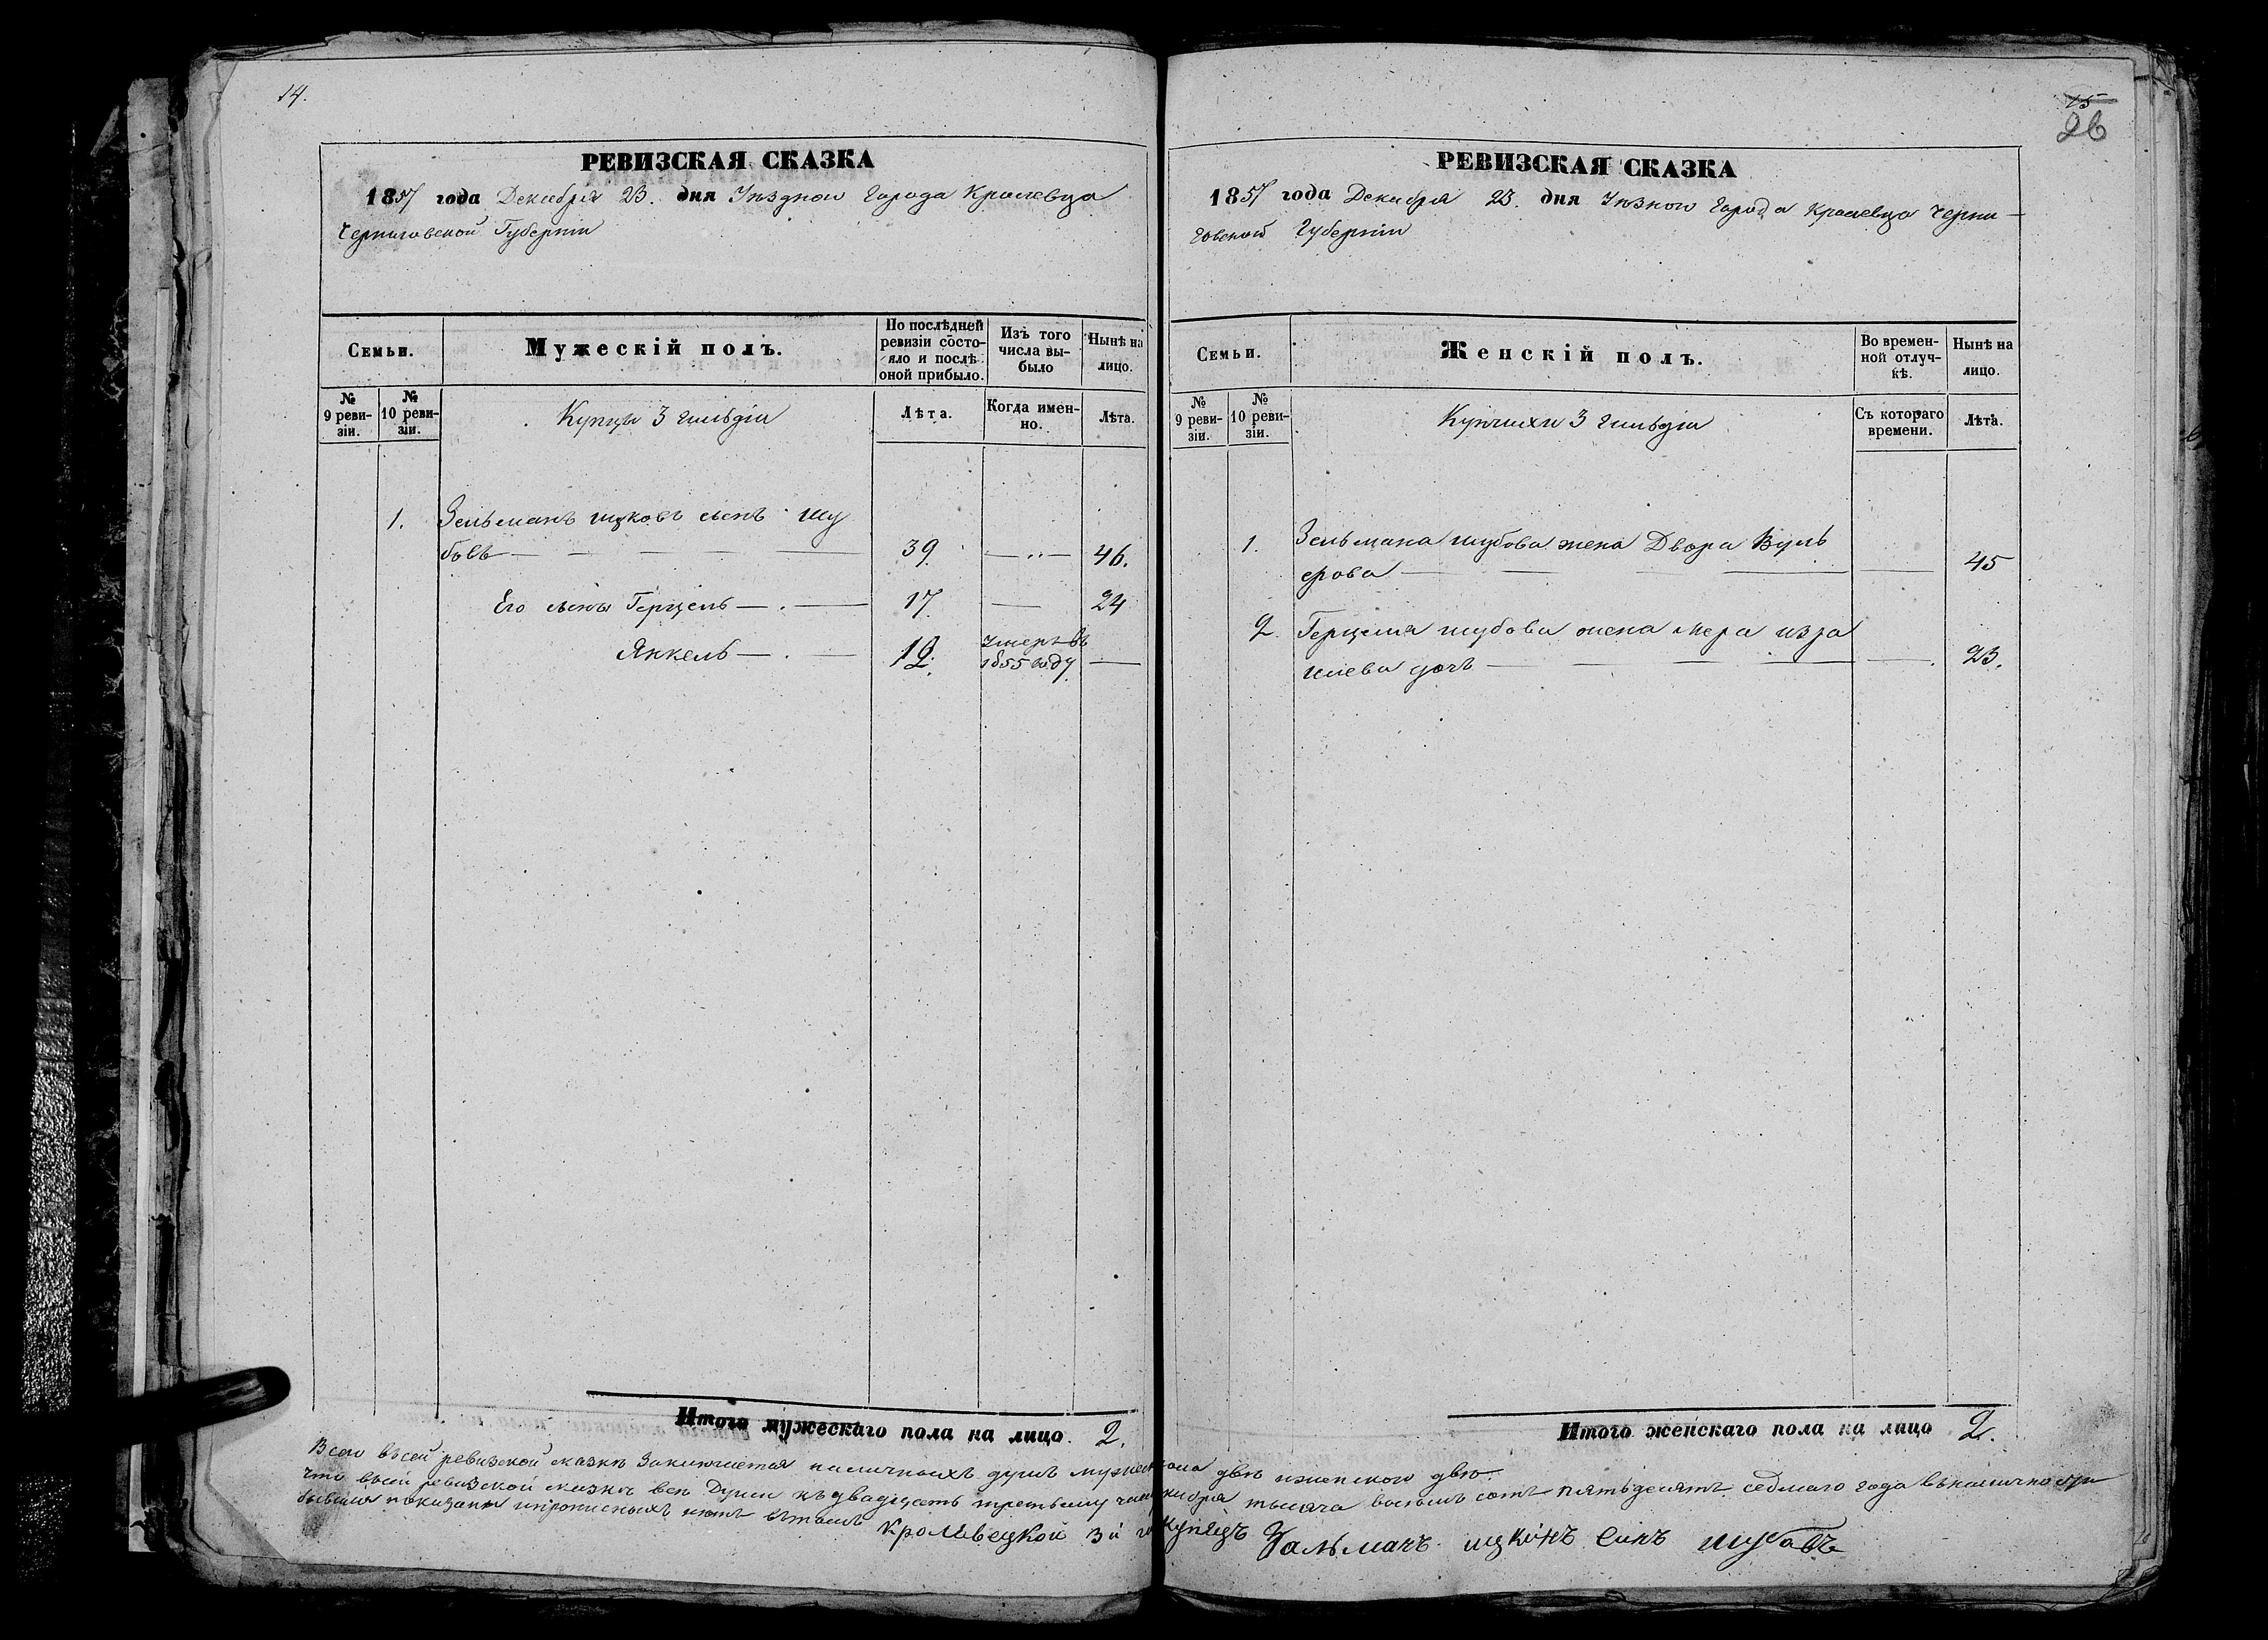 14.
РЕВИЗСКАЯ СКАЗКА
1857 года Декабря 23. дня Уѣзднаго Города Кролевца
Черниговской Губерніи
Семьи.
Мужескій полъ.
По послѣдней ревизіи состояло и послѣ оной прибыло.
Изъ того числа выбыло
Нынѣ на лицо.
№ 9 ревизіи.
№ 10 ревизіи.
Купцы 3 гильдіи
Лѣта.
Когда именно.
Лѣта.
1. Зельманъ Ицковъ сынъ Шу
бовъ 39. 46.
Его сынъ Герцель 17. 24
Янкель 12. умеръ въ
1855 году
Итого мужескаго пола на лицо. 2.
15
26
РЕВИЗСКАЯ СКАЗКА
1857 года Декабря 23. дня Уѣзного Города Кролевца Черни-
говской Губерніи
Семьи.
Женскій полъ.
Во временной отлучкѣ.
Нынѣ на лицо.
№ 9 ревизіи.
№ 10 ревизіи.
Купчихи 3 гильдіи
Съ котораго времени.
Лѣта.
1. Зельмана Шубова жена Двора Вуль
фова 45
2. Герцеля Шубова жена Мера Изра
илева дочь 23.
Итого женскаго пола на лицо 2.
Всего въ сей ревизской сказкѣ заключается наличныхъ душъ мужеска пола двѣ и женского двѣ.
что въ сей ревизской сказкѣ всѣ души къ двадцать третьему числу декабря тысяча восемь сотъ пятьдесятъ седмаго года въ наличности
бывшія показаны и прописныхъ нетъ въ томъ
Кролевецкой 3й гил Купецъ Залманъ ицкоκъ синъ шубовъ